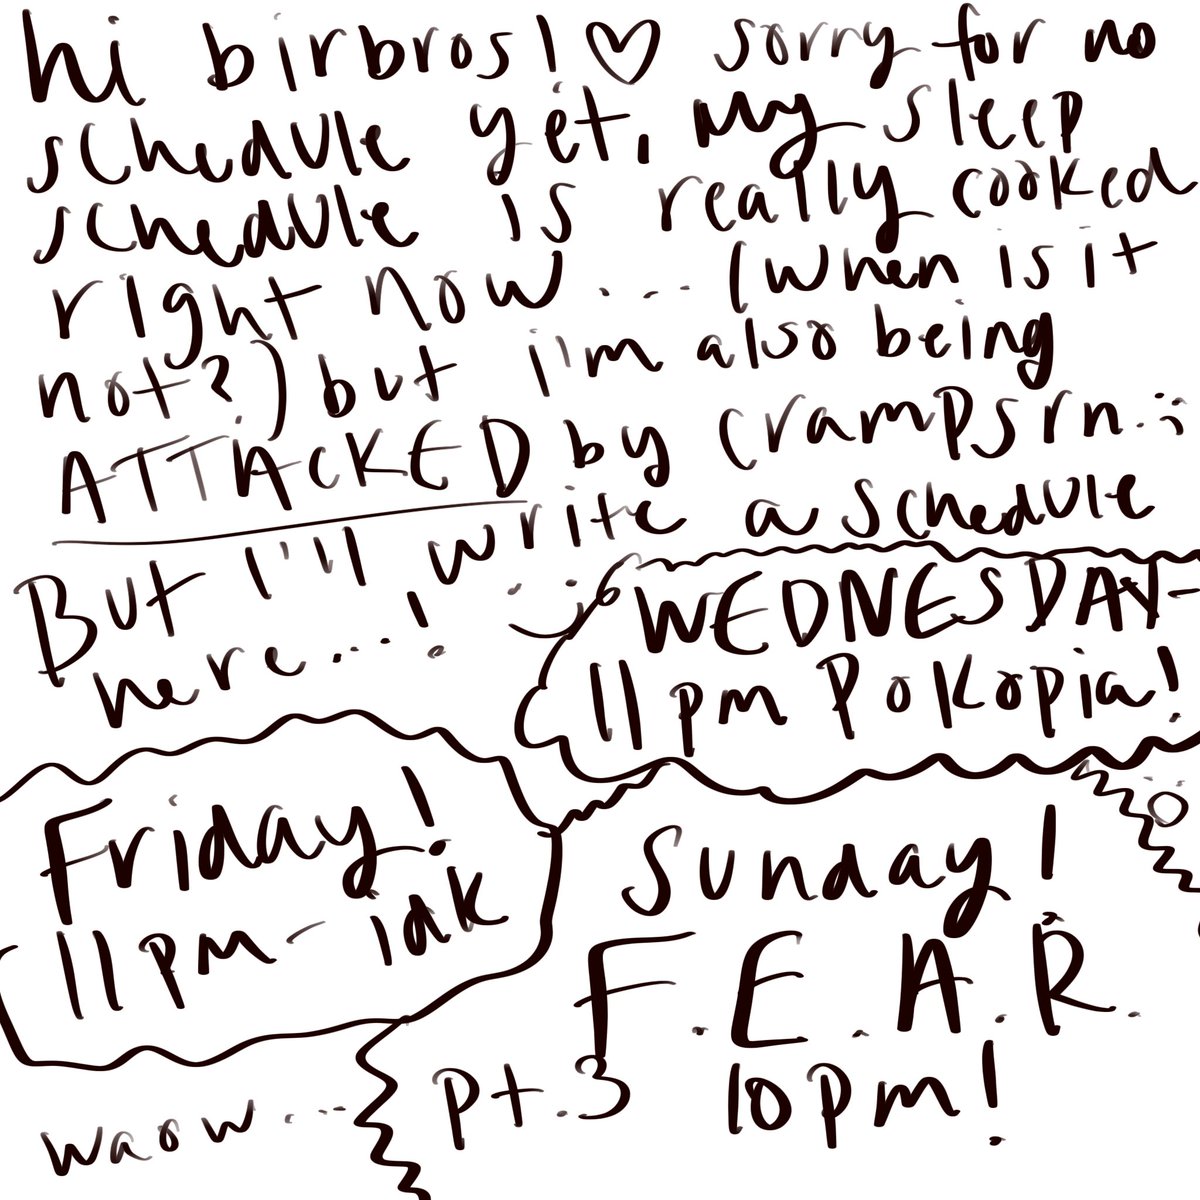 hi birbros! ♡ sorry for no
schedule yet, my sleep
schedule is really cooked
right now... (when is it
not?) but i'm also being
ATTACKED by cramps rn. :;
But I'll write a schedule
here...! :)
WEDNESDAY-
11pm Pokopia!
Friday!
11pm - idk
Sunday!
F.E.A.R.
pt.3 10pm!
waow...